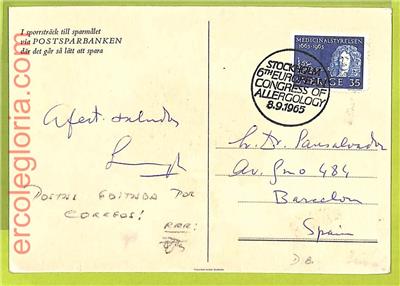 I sporrsträck till sparmålet
via POSTSPARBANKEN
där det går så lätt att spara
MEDICINALSTYRELSEN
1663-1963
SVERIGE 35
STOCKHOLM
6TH EUROPEAN
CONGRESS OF
ALLERGOLOGY
8.9.1965
Afect. saludos
Dr. Pansalvador
Av. Gmo 484
Barcelon
Spain
POSTAL EDITADA POR
CORREOS!
RRR!
D.B.
ercolegloria.com